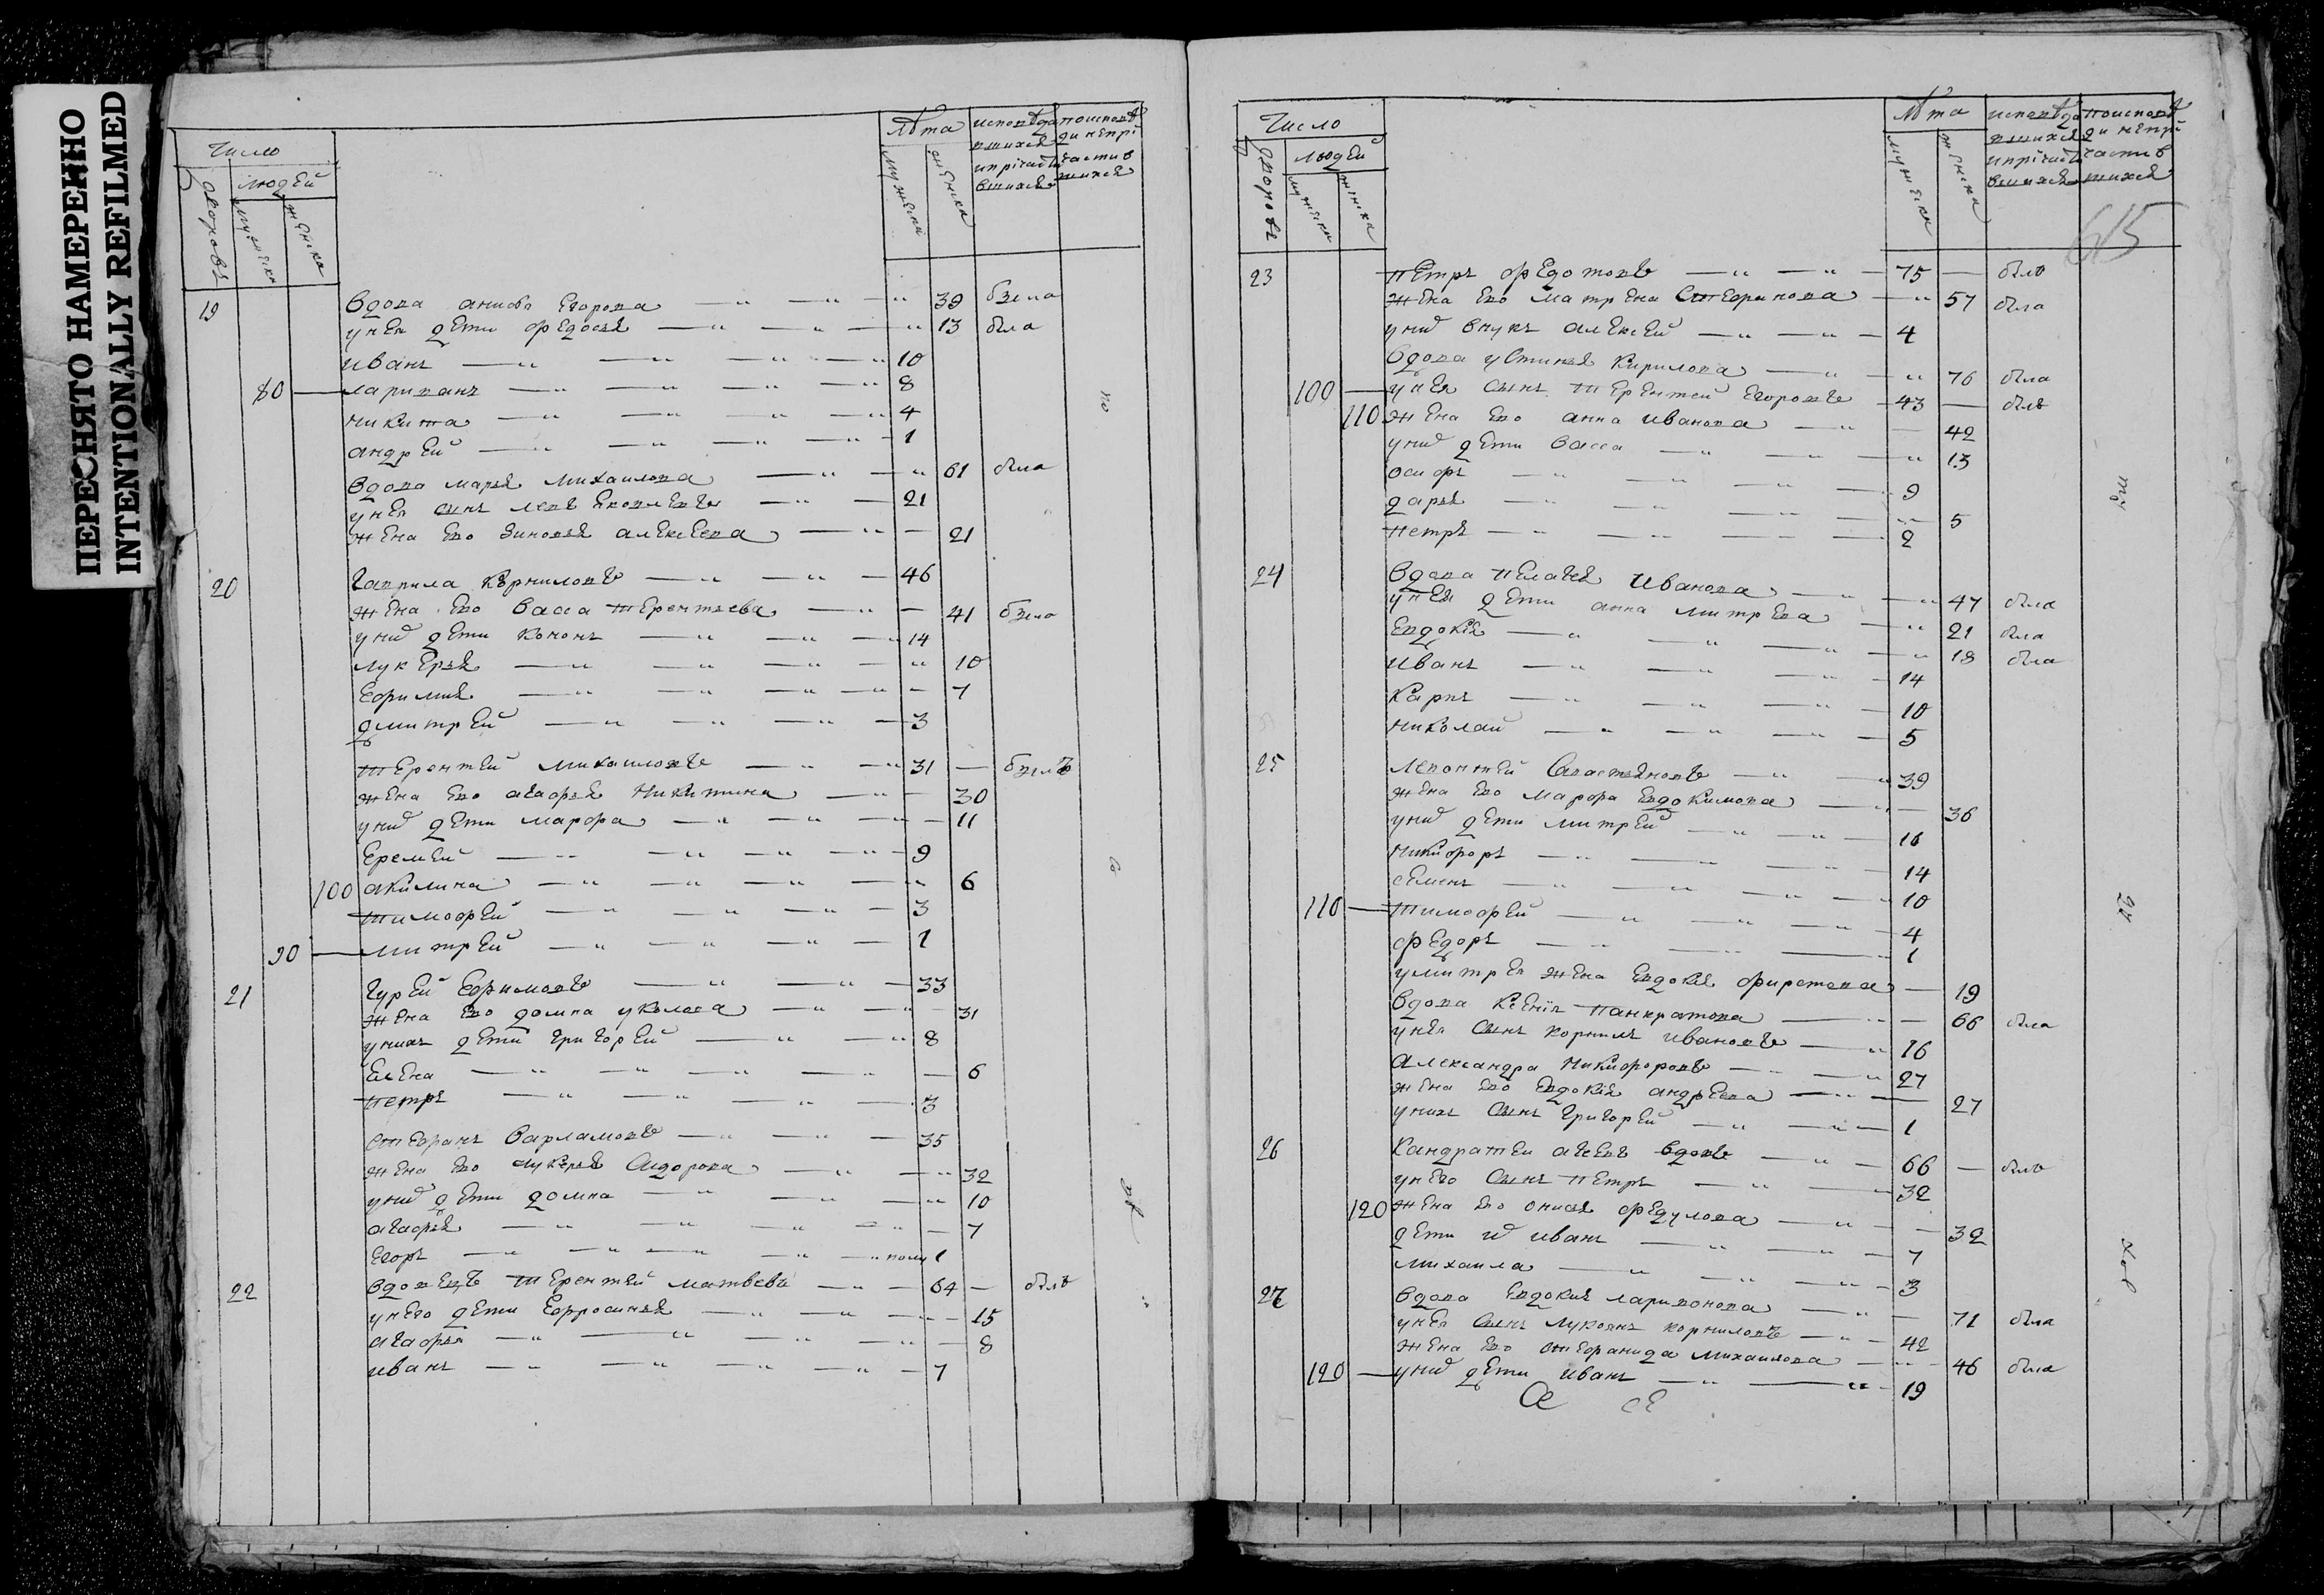 ПЕРЕСНЯТО НАМЕРЕННО
INTENTIONALLY REFILMED
Число
людей
дворовъ
мужеска
женска
лѣта
мужеска
женска
исповѣдавшихся и причастившихся
по исповѣди не причастившихся
19 вдова Егорова 39 была
у нея дети федосья 13 была
иванъ 10
80 ларивонъ 8
никита 4
андрей 1
вдова марья михаилова 61 была
у нея сынъ 21
жена ево зиновья алексеева 21
20 гаврила корниловъ 46
жена ево васса терентьева 41 была
у них дети кононъ 14
лукерья 10
ефимия 7
дмитрей 3
терентей михаиловъ 31 былъ
жена ево агафья никитина 30
у них дети марфа 11
еремей 9
100 акилина 6
тимофей 3
90 митрей 1
21 гурей ефимовъ 33
жена ево домна 31
у нихъ дети григорей 8
елена 6
петръ 3
стефанъ варламовъ 35
жена ево лукерья сидорова 32
у них дети домна 10
агафья 7
егоръ полу 1
22 вдовецъ терентей матвеевъ 64 былъ
у него дети ефросинья 15
агафья 8
иванъ 7
по
с
Число
людей
дворовъ
мужеска
женска
лѣта
мужеска
женска
исповѣдавшихся и причастившихся
по исповѣди не причастившихся
615
23 петръ федотовъ 75 былъ
жена ево матрена стефанова 57 была
у них внукъ алексей 4
вдова устинья кирилова 76 была
100 у нея сынъ терентей егоровъ 43 былъ
110 жена ево анна иванова 42
у них дети васса 13
осифъ 9
дарья 5
петръ 2
24 вдова пелагея иванова 47 была
у нея дети анна митрева 21 была
евдокія 18 была
иванъ 14
карпъ 10
николай 5
25 левонтей савостьяновъ 39
жена ево марфа евдокимова 36
у них дети митрей 16
никифоръ 14
семенъ 10
110 тимофей 4
федоръ 1
у митрея жена евдокія 19
вдова ксенія панкратова 66 была
у нея сынъ корнилъ ивановъ 16
александра никифоровъ 27
жена ево евдокія андреева 27
у нихъ сынъ григорей 1
26 кандратей вдовъ 66 былъ
у него сынъ петръ 32
120 жена ево анисья федулова 32
дети иванъ 7
михаила 3
27 вдова евдокия ларивонова 71 была
у нея сынъ лукоянъ корниловъ 42
жена ево стефанида михаилова 46 была
120 у них дети иванъ 19